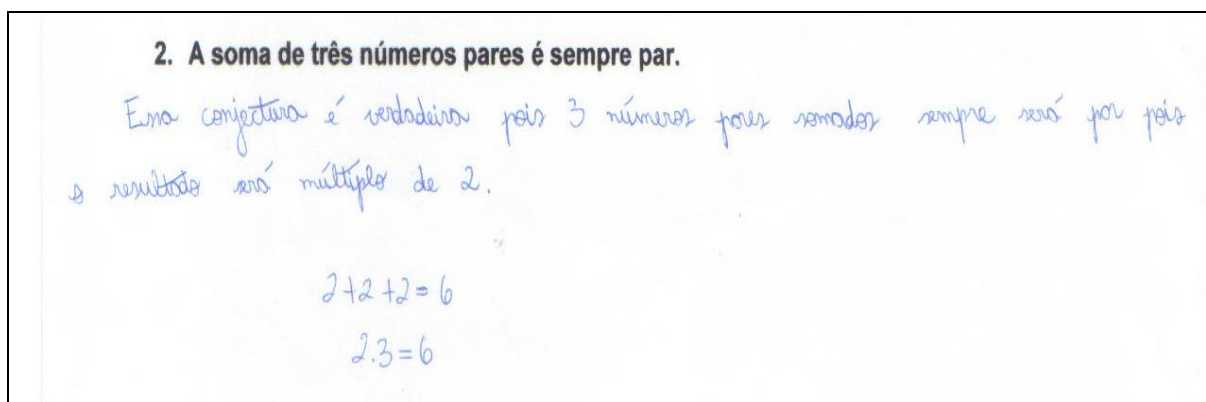 2. A soma de três números pares é sempre par.
Essa conjectura é verdadeira pois 3 números pares somados sempre será par pois
o resultado será múltiplo de 2.
2+2+2=6
2.3=6